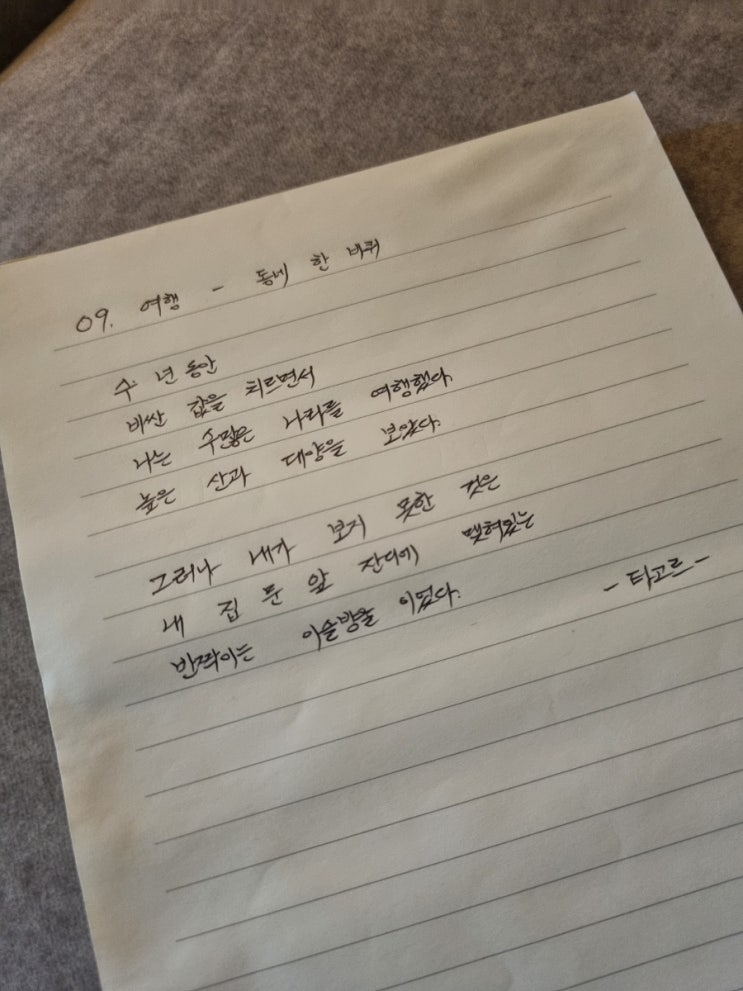 09. 여행 - 동네 한 바퀴
수 년 동안
비싼 값을 치르면서
나는 수많은 나라를 여행했다.
높은 산과 대양을 보았다.
그러나 내가 보지 못한 것은
내 집 문 앞 잔디에 맺혀있는
반짝이는 이슬방울 이었다.
- 타고르 -